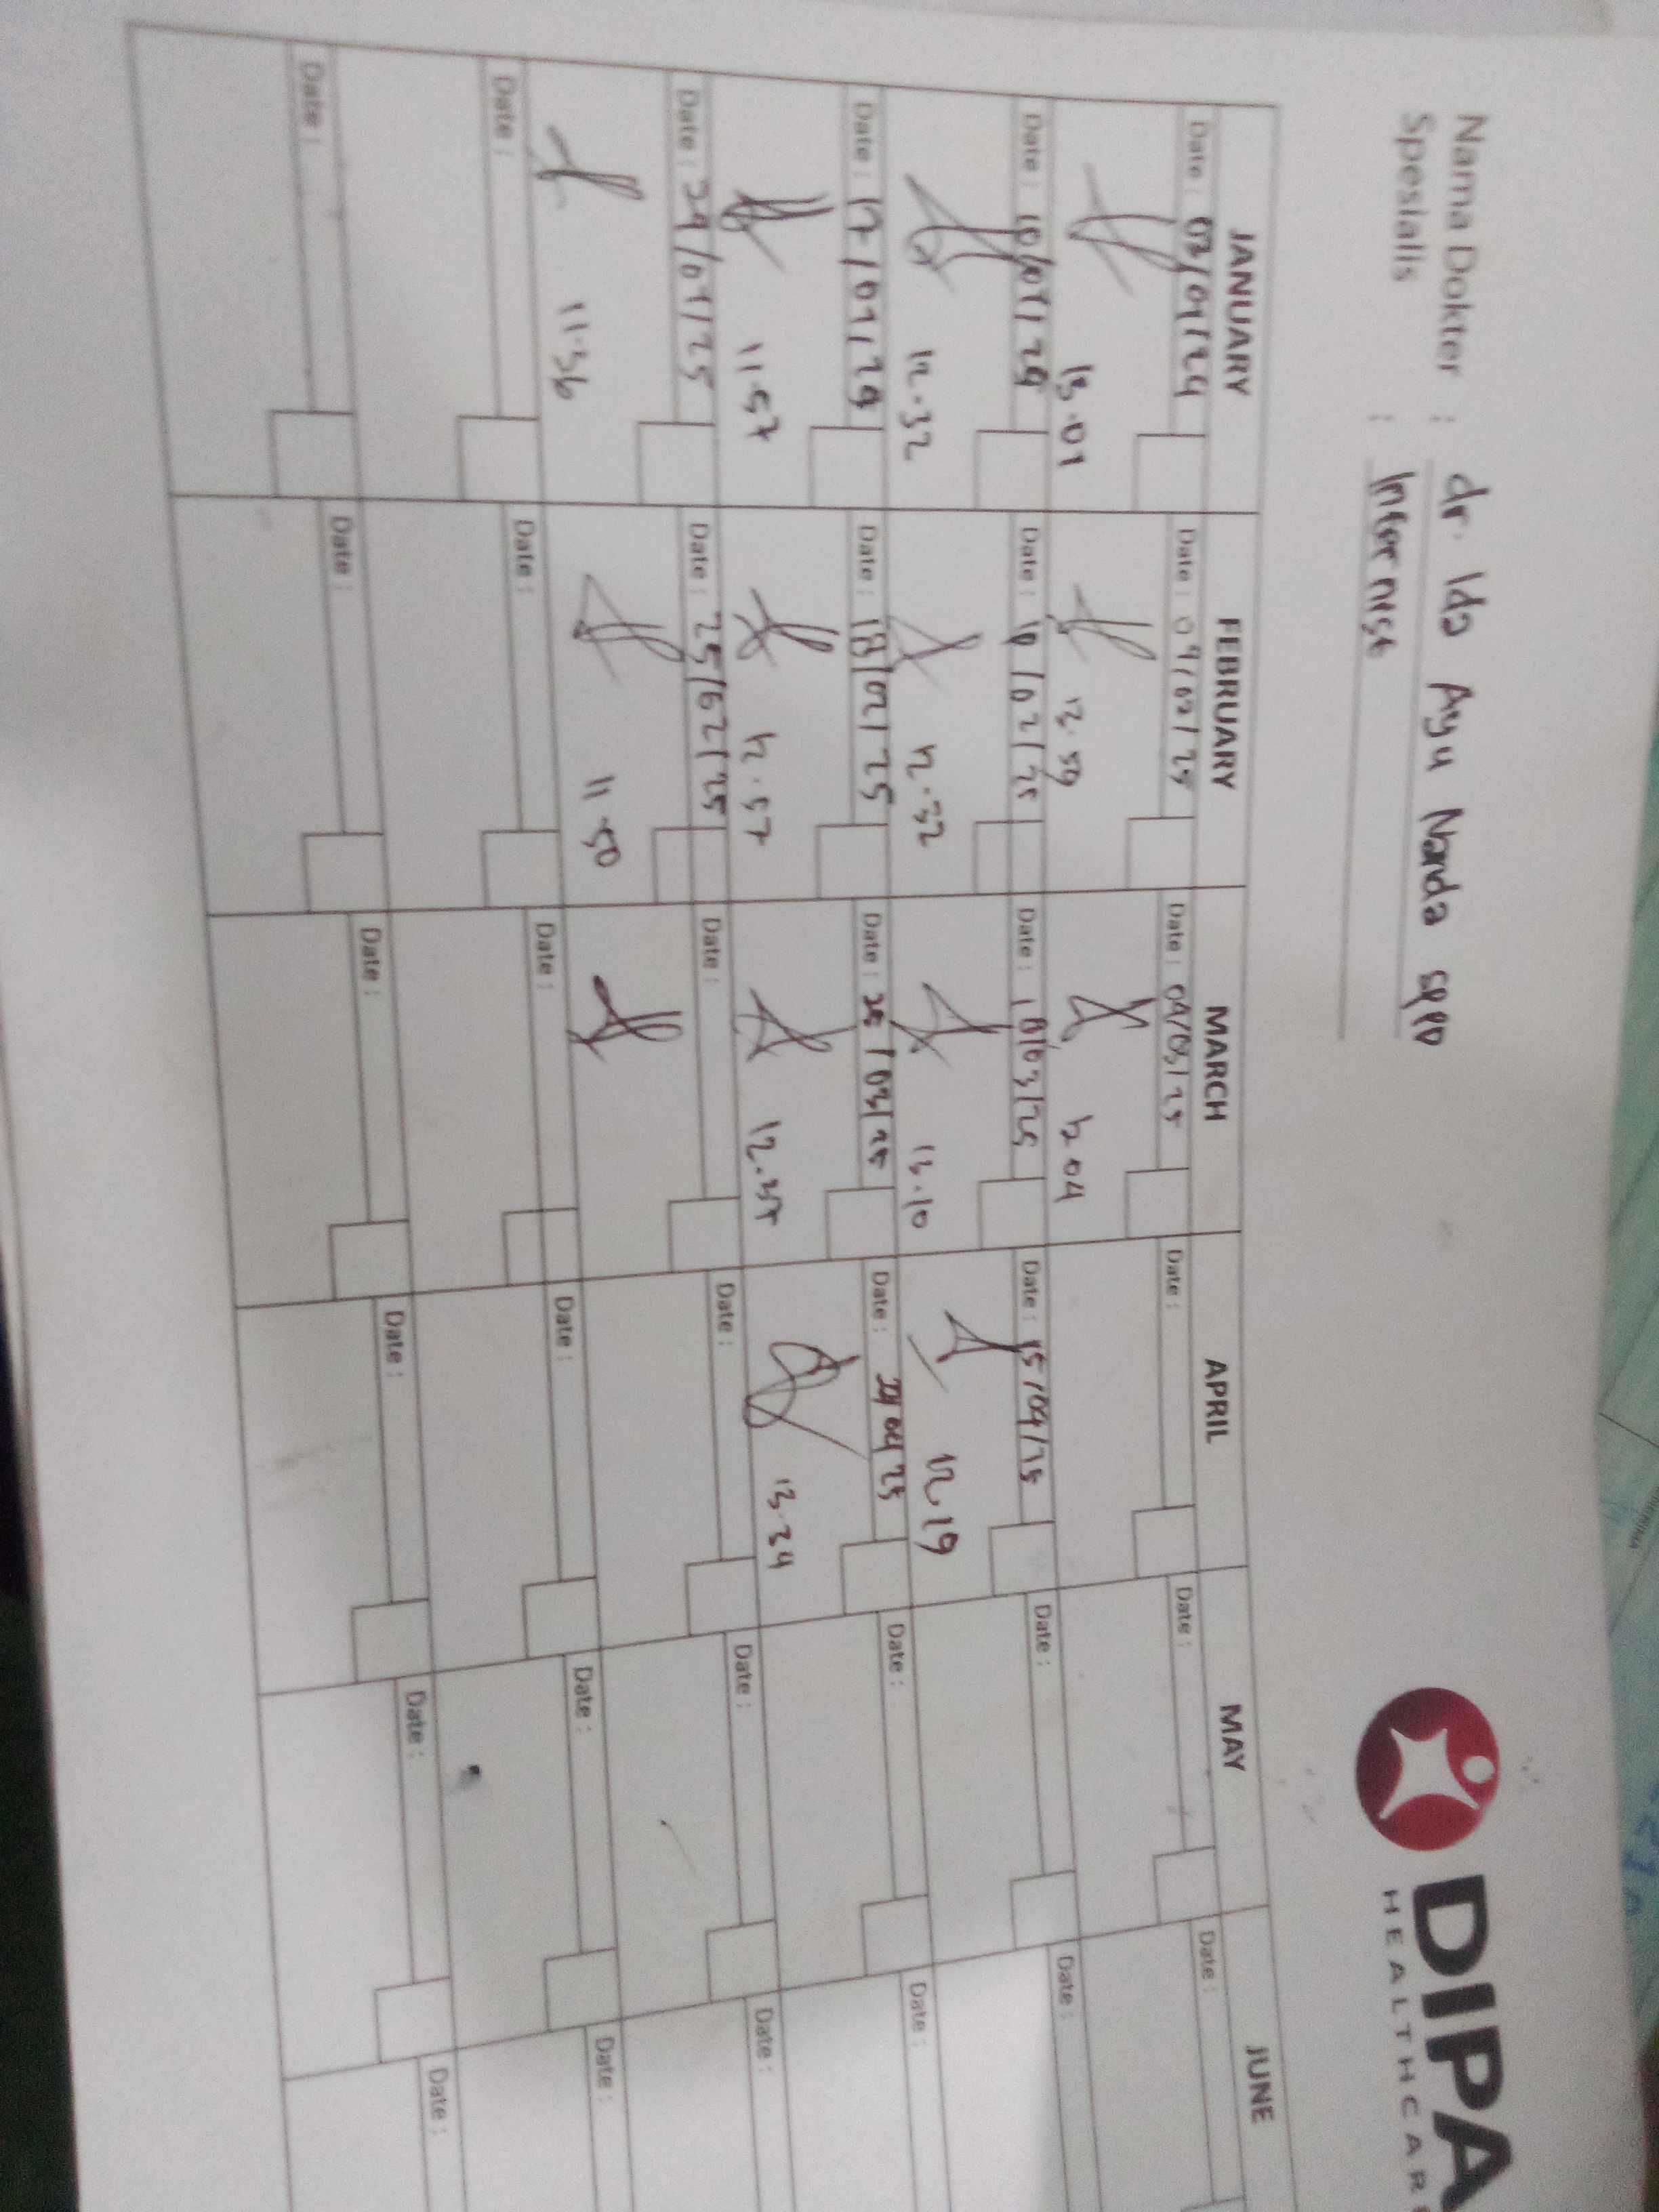 DIPA
HEALTHCARE
Nama Dokter : dr. Ida Ayu Nanda SpPD
Spesialis : Internist
JANUARY FEBRUARY MARCH APRIL MAY JUNE
Date : 03/01/24 Date : 04/02/25 Date : 04/03/25 Date : Date : Date :
13.01 12.59 12 04
Date : 10/01/24 Date : 10/02/25 Date : 18/03/25 Date : 15/04/25 Date : Date :
12.32 12.32 13.10 12.19
Date : 17/01/24 Date : 18/02/25 Date : 25/03/25 Date : 24 04 25 Date : Date :
11.57 12.57 12.37 13.34
Date : 24/01/25 Date : 25/02/25 Date : Date : Date : Date :
11.36 11.50
Date : Date : Date : Date : Date : Date :
Date : Date : Date : Date : Date : Date :